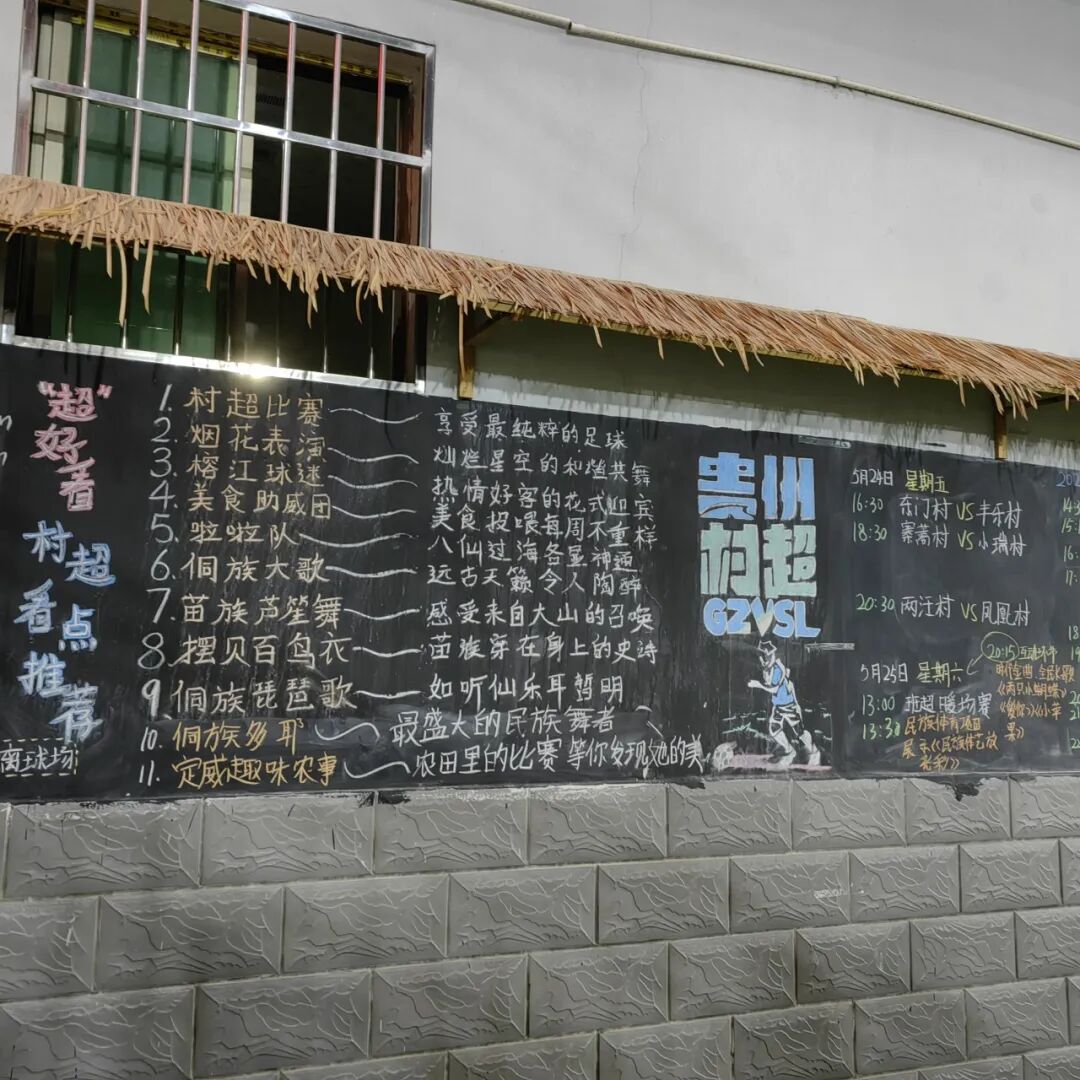 "超"
好
看
村
超
看
点
推
荐
离球场
1. 村超比赛 —— 享受最纯粹的足球
2. 烟花表演 —— 灿烂星空的和谐共舞
3. 榕江球迷 —— 热情好客的花式迎宾
4. 美食助威团 —— 美食投喂每周不重样
5. 啦啦队 —— 八仙过海各显神通
6. 侗族大歌 —— 远古天籁令人陶醉
7. 苗族芦笙舞 —— 感受来自大山的召唤
8. 摆贝百鸟衣 —— 苗族穿在身上的史诗
9. 侗族琵琶歌 —— 如听仙乐耳暂明
10. 侗族多耶 —— 最盛大的民族舞者
11. 定威趣味农事 —— 农田里的比赛 等你发现它的美
贵州
村超
GZVSL
5月24日 星期五
16:30 东门村 VS 丰乐村
18:30 寨蒿村 VS 小瑞村
20:30 两汪村 VS 凤凰村
20:15 互动环节
5月25日 星期六
13:00 班超暖场赛
13:30 民族体育项目
展示
《两只小蝴蝶》